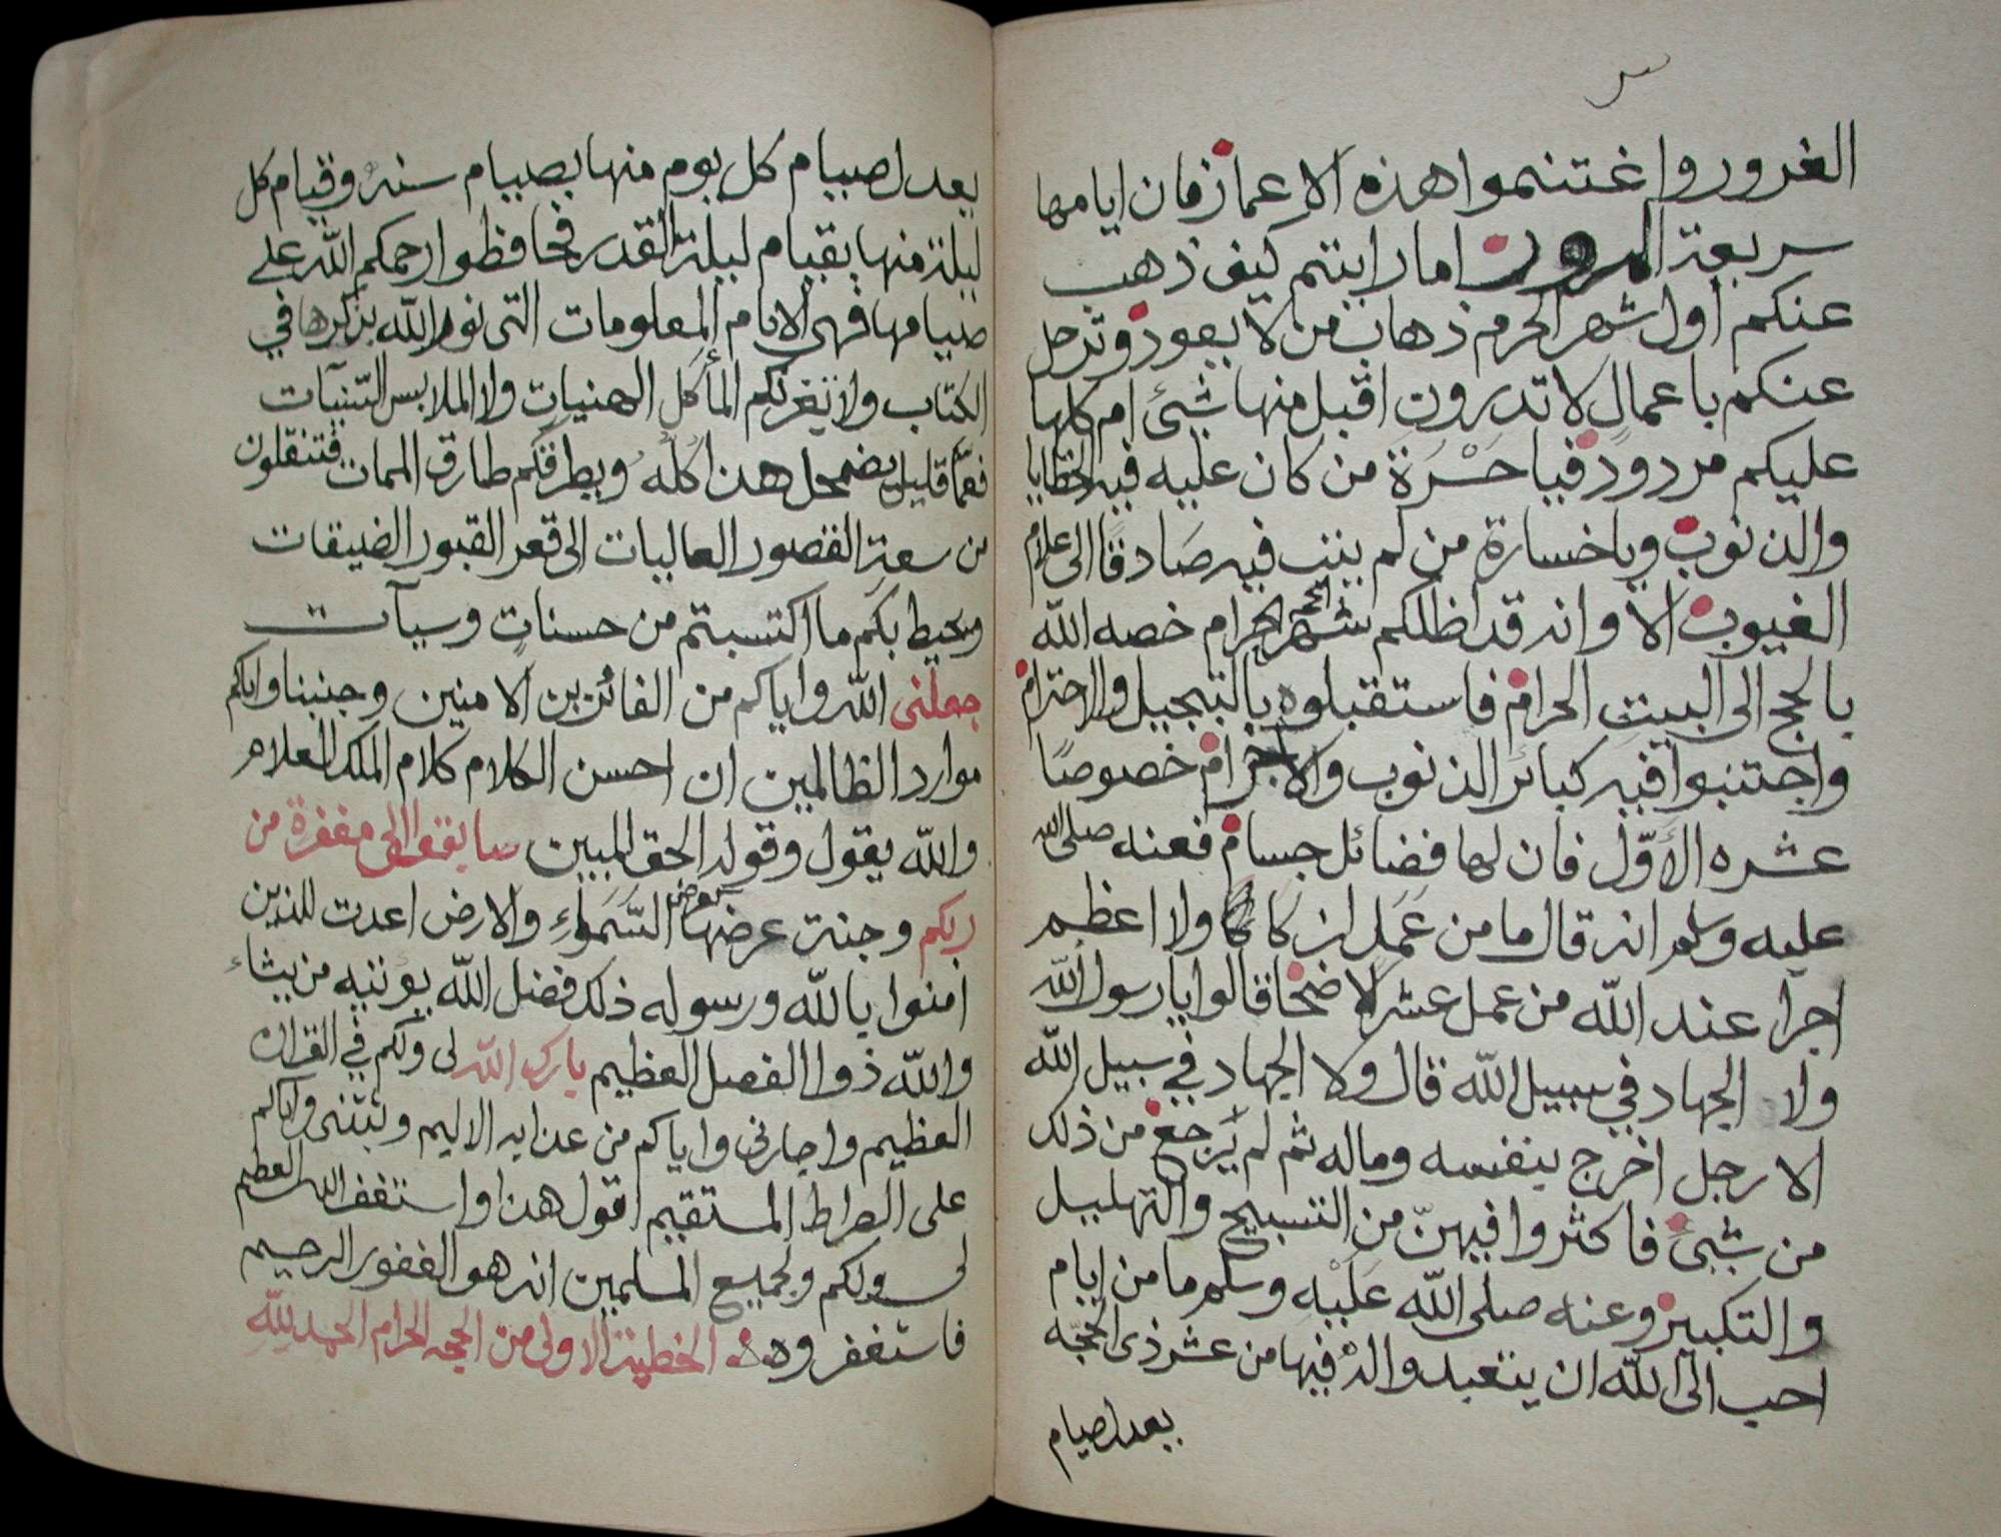 الغرور واغتنموا هذه الاعمار فان ايامها
سريعة المرور اما رايتم كيف ذهب
عنكم اول شهر الحرم ذهاب من لا يعود وترحل
عنكم باعمال لا تدرون اقبل منها شيئ ام كلها
عليكم مردود فيا حسرة من كان عليه فيه الخطايا
والذنوب ويا خسارة من لم ينب فيه صادقا الى علام
الغيوب الا وانه قد اظلكم شهر الحرام خصه الله
بالحج الى البيت الحرام فاستقبلوه بالتبجيل والاحترام
واجتنبوا فيه كبائر الذنوب والاجرام خصوصًا
عشره الأوّل فان لها فضائل جسام فعنه صلى الله
عليه وسلم انه قال ما من عَمَل ازكا ولا اعظم
اجرا عند الله من عمل عشر الاضحا قالوا يا رسول الله
ولا الجهاد في سبيل الله قال ولا الجهاد في سبيل الله
الا رجل اخرج بنفسه وماله ثم لم يَرجع من ذلك
من شيئ فاكثروا فيهنّ من التسبيح والتهليل
والتكبير وعنه صلى الله عَليْه وسلم ما من ايام
احب الى الله ان يتعبد والهْ فيها من عشر ذى الحجه
يعدل صيام
يعدل صيام كل يوم منها بصيام سنة وقيام كل
ليلة منها بقيام ليلة القدر فحافظوا رحمكم الله على
صيامها فهى الايام المعلومات التى نوه الله بذكرها في
الكتاب ولا تغرنكم المأكل الهنيات ولا الملابس السّنيات
فعمّا قليل يضمحل هذا كله ويطرقكم طارق الممات فتنقلون
من سعة القصور العاليات الى قعر القبور الضيقات
ويحيط بكم ما اكتسبتم من حسنات وسيآت
جعلنى الله واياكم من الفائزين الامنين وجنبنا واياكم
موارد الظالمين ان احسن الكلام كلام الملك العلام
والله يقول وقوله الحق المبين سابقوا الى مغفرة من
ربكم وجنة عرضها كعرض السَّمَواءِ والارض اعدت للذين
امنوا بالله ورسوله ذلك فضل الله يوتيه من يشاء
والله ذوا الفضل العظيم بارك الله لى ولكم في القران
العظيم واجارنى واياكم من عذابه الاليم وثبتنى واياكم
على الصراط المستقيم اقول هذا واستغفر الله العظيم
لى ولكم ولجميع المسلمين انه هو الغفور الرحيم
فاستغفروه الخطبة الاولى من الحجه الحرام الحمد لله